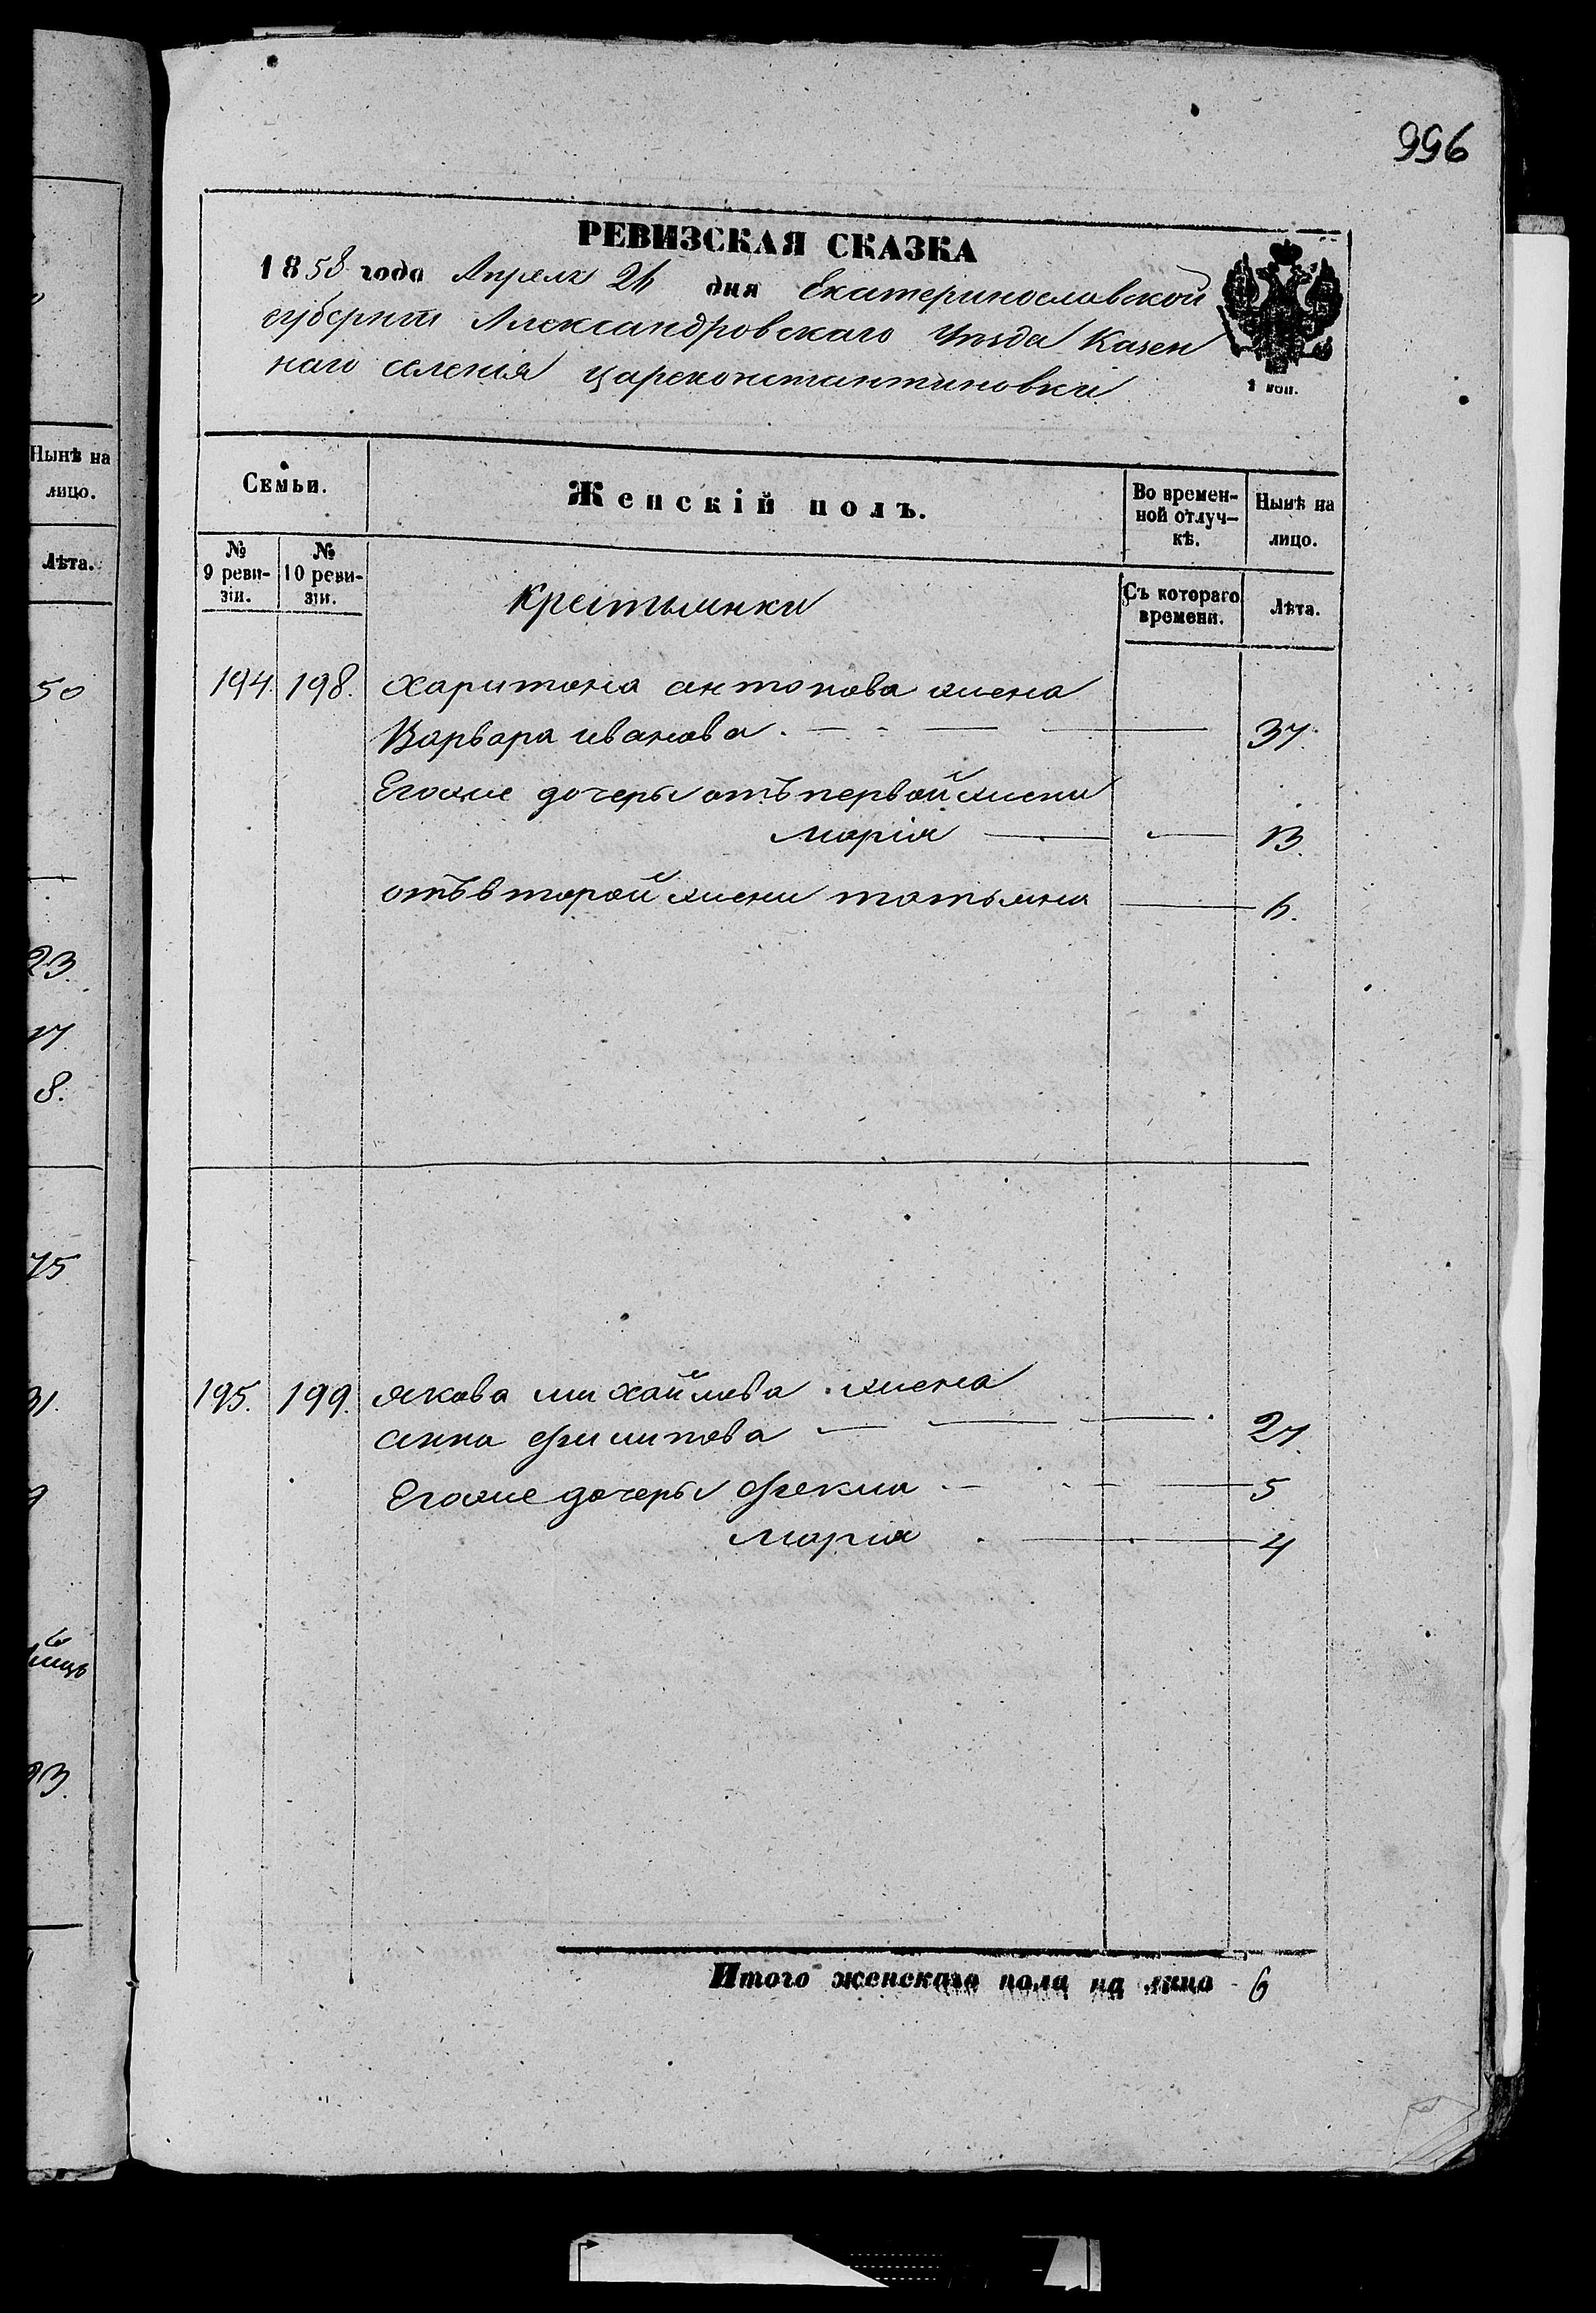 996
РЕВИЗСКАЯ СКАЗКА
1858 года Апреля 26 дня Екатеринославской
губернии Александровскаго Уезда Казен
наго селенія Цареконстантиновки
1 коп.
Семьи.
Женскій полъ.
Во времен-
ной отлуч-
кѣ.
Нынѣ на
лицо.
№
9 реви-
зіи.
№
10 реви-
зіи.
Съ котораго
времени.
Лѣта.
Крестьянки
194. 198. Харитона антонова жена
Варвара иванова. 37.
Егоже дочеры отъ первой жены
марія 13.
отъ второй жены татьяна 6.
195. 199. якова михайлова жена
анна филипова 27.
Егоже дочеры фекла 5
мария 4
Итого женскаго пола на лицо 6
Нынѣ на
лицо.
Лѣта.
50
23.
17.
8.
75
31.
9